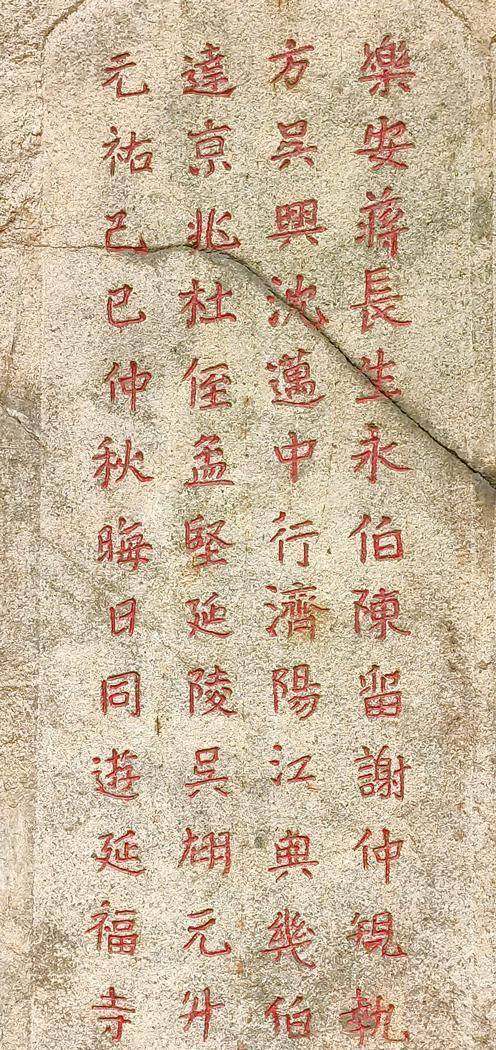 樂安蔣長生永伯陳留謝仲規執
方吳興沈邁中行濟陽江與幾伯
達京兆杜侄孟堅延陵吳栩元升
元祐己巳仲秋晦日同遊延福寺